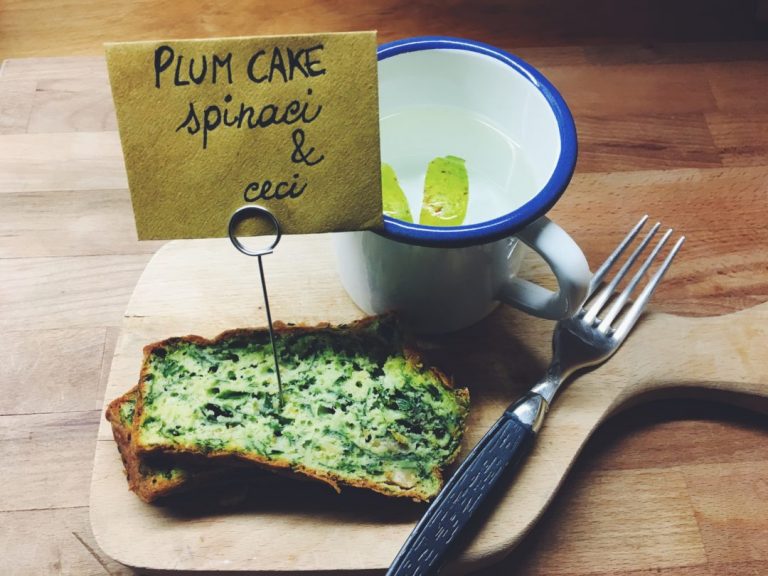 PLUM CAKE
spinaci
&
ceci